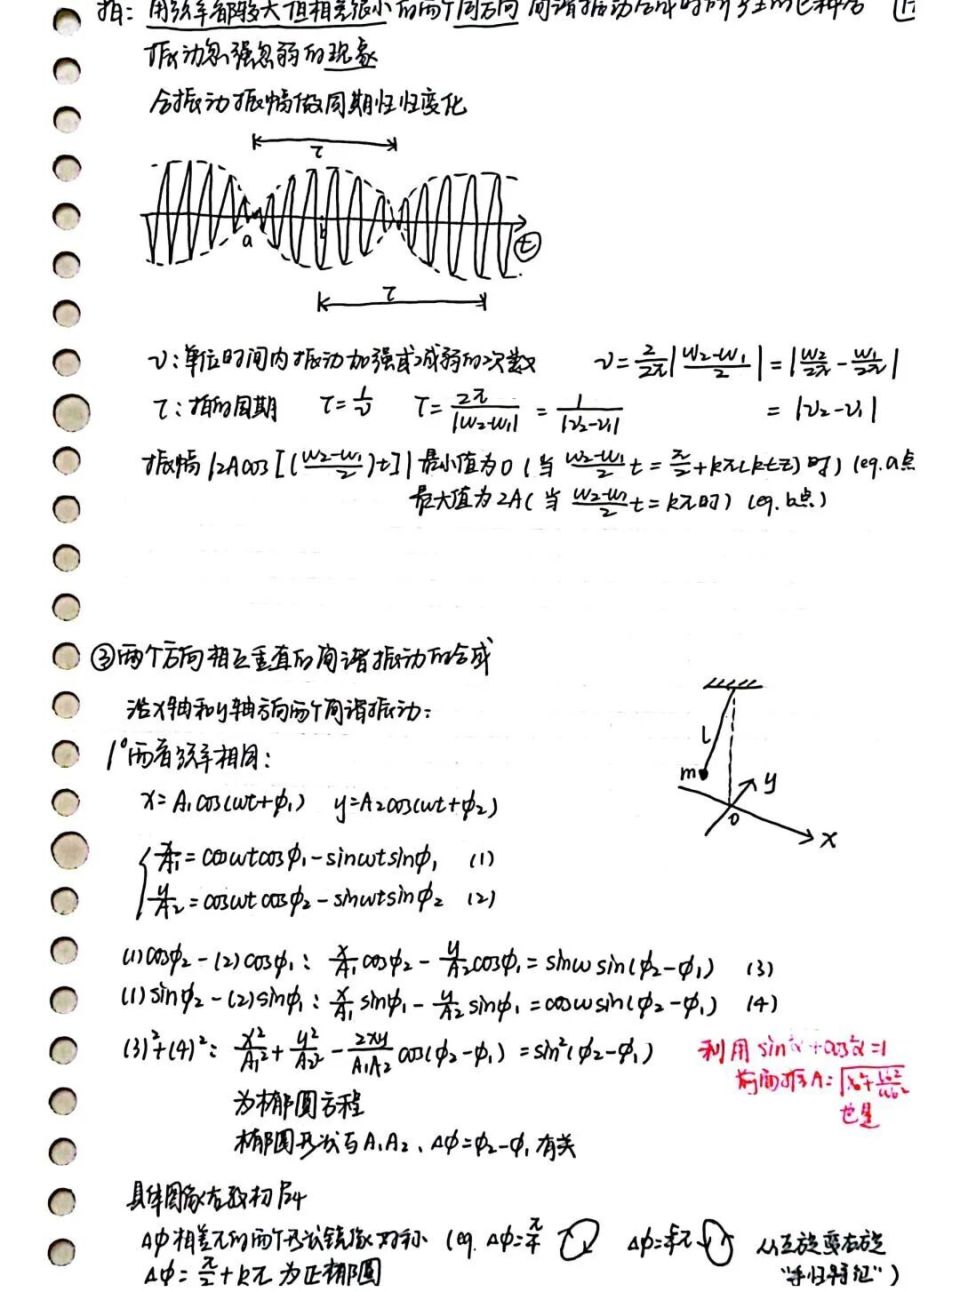 拍：频率都较大但相差很小的两个同方向简谐振动合成时所产生的
振动忽强忽弱的现象
合振动振幅做周期性变化
τ
a b t
τ
ν：单位时间内振动加强或减弱的次数 ν=2/2π|ω₂-ω₁/2|=|ω₂/2π-ω₁/2π|
τ：拍的周期 τ=1/ν τ=2π/|ω₂-ω₁|=1/|ν₂-ν₁| =|ν₂-ν₁|
振幅|2Acos[(ω₂-ω₁/2)t]|最小值为0(当ω₂-ω₁/2 t=π/2+kπ(k∈Z)时)(eg.a点
最大值为2A(当ω₂-ω₁/2 t=kπ时)(eg.b点)
③两个方向相互垂直的简谐振动的合成
沿x轴和y轴方向两个简谐振动：
1°两者频率相同：
L
m
y
O
x
x=A₁cos(ωt+φ₁) y=A₂cos(ωt+φ₂)
x/A₁=cosωtcosφ₁-sinωtsinφ₁ (1)
y/A₂=cosωtcosφ₂-sinωtsinφ₂ (2)
(1)cosφ₂-(2)cosφ₁：x/A₁cosφ₂-y/A₂cosφ₁=sinωsin(φ₂-φ₁) (3)
(1)sinφ₂-(2)sinφ₁：x/A₁sinφ₁-y/A₂sinφ₁=cosωsin(φ₂-φ₁) (4)
(3)²+(4)²：x²/A₁²+y²/A₂²-2xy/A₁A₂cos(φ₂-φ₁)=sin²(φ₂-φ₁) 利用sin²α+cos²α=1
前面求A=√x₀²+v₀²/ω₀²
也是
为椭圆方程
椭圆形状与A₁A₂、Δφ=φ₂-φ₁有关
具体图像在教材P54
Δφ相差π的两个形状镜像对称(eg. Δφ=π/4 Δφ=5/4π 从左旋变右旋
Δφ=π/2+kπ为正椭圆 "手性特征")